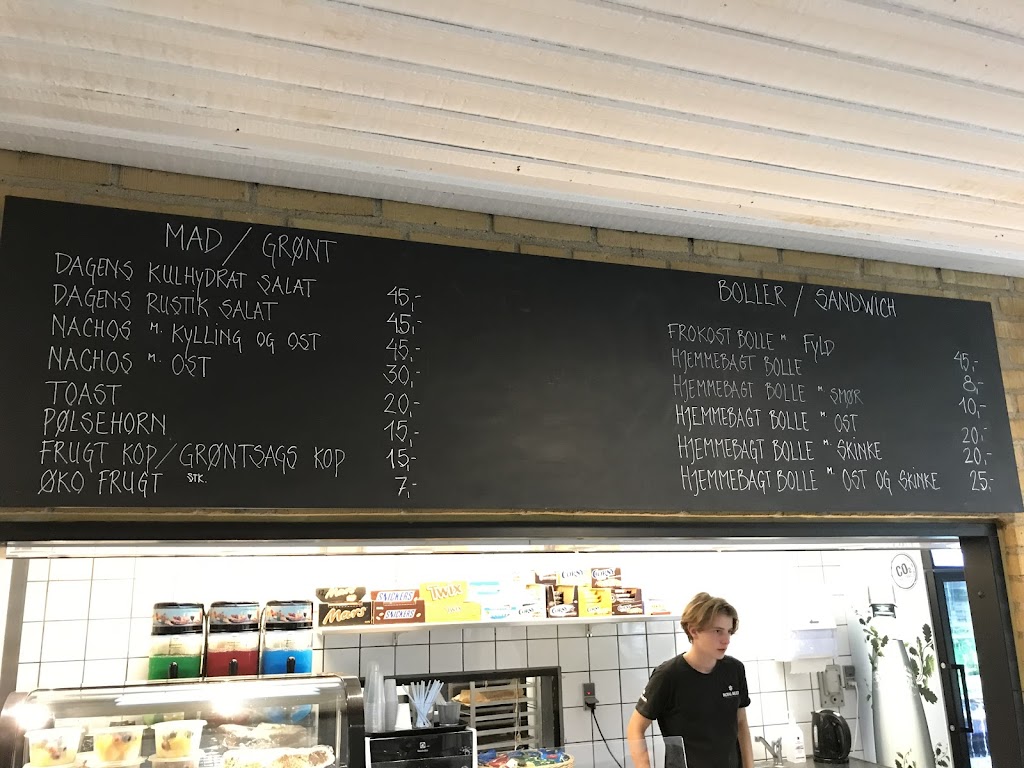 MAD / GRØNT
DAGENS KULHYDRAT SALAT 45,-
DAGENS RUSTIK SALAT 45,-
NACHOS M. KYLLING OG OST 45,-
NACHOS M. OST 30,-
TOAST 20,-
PØLSEHORN 15,-
FRUGT KOP/GRØNTSAGS KOP 15,-
ØKO FRUGT STK. 7,-
BOLLER / SANDWICH
FROKOST BOLLE M FYLD 45,-
HJEMMEBAGT BOLLE 8,-
HJEMMEBAGT BOLLE M. SMØR 10,-
HJEMMEBAGT BOLLE M. OST 20,-
HJEMMEBAGT BOLLE M. SKINKE 20,-
HJEMMEBAGT BOLLE M. OST OG SKINKE 25,-
Mars
Mars
SNICKERS
SNICKERS
TWIX
Corny
Corny
CO2